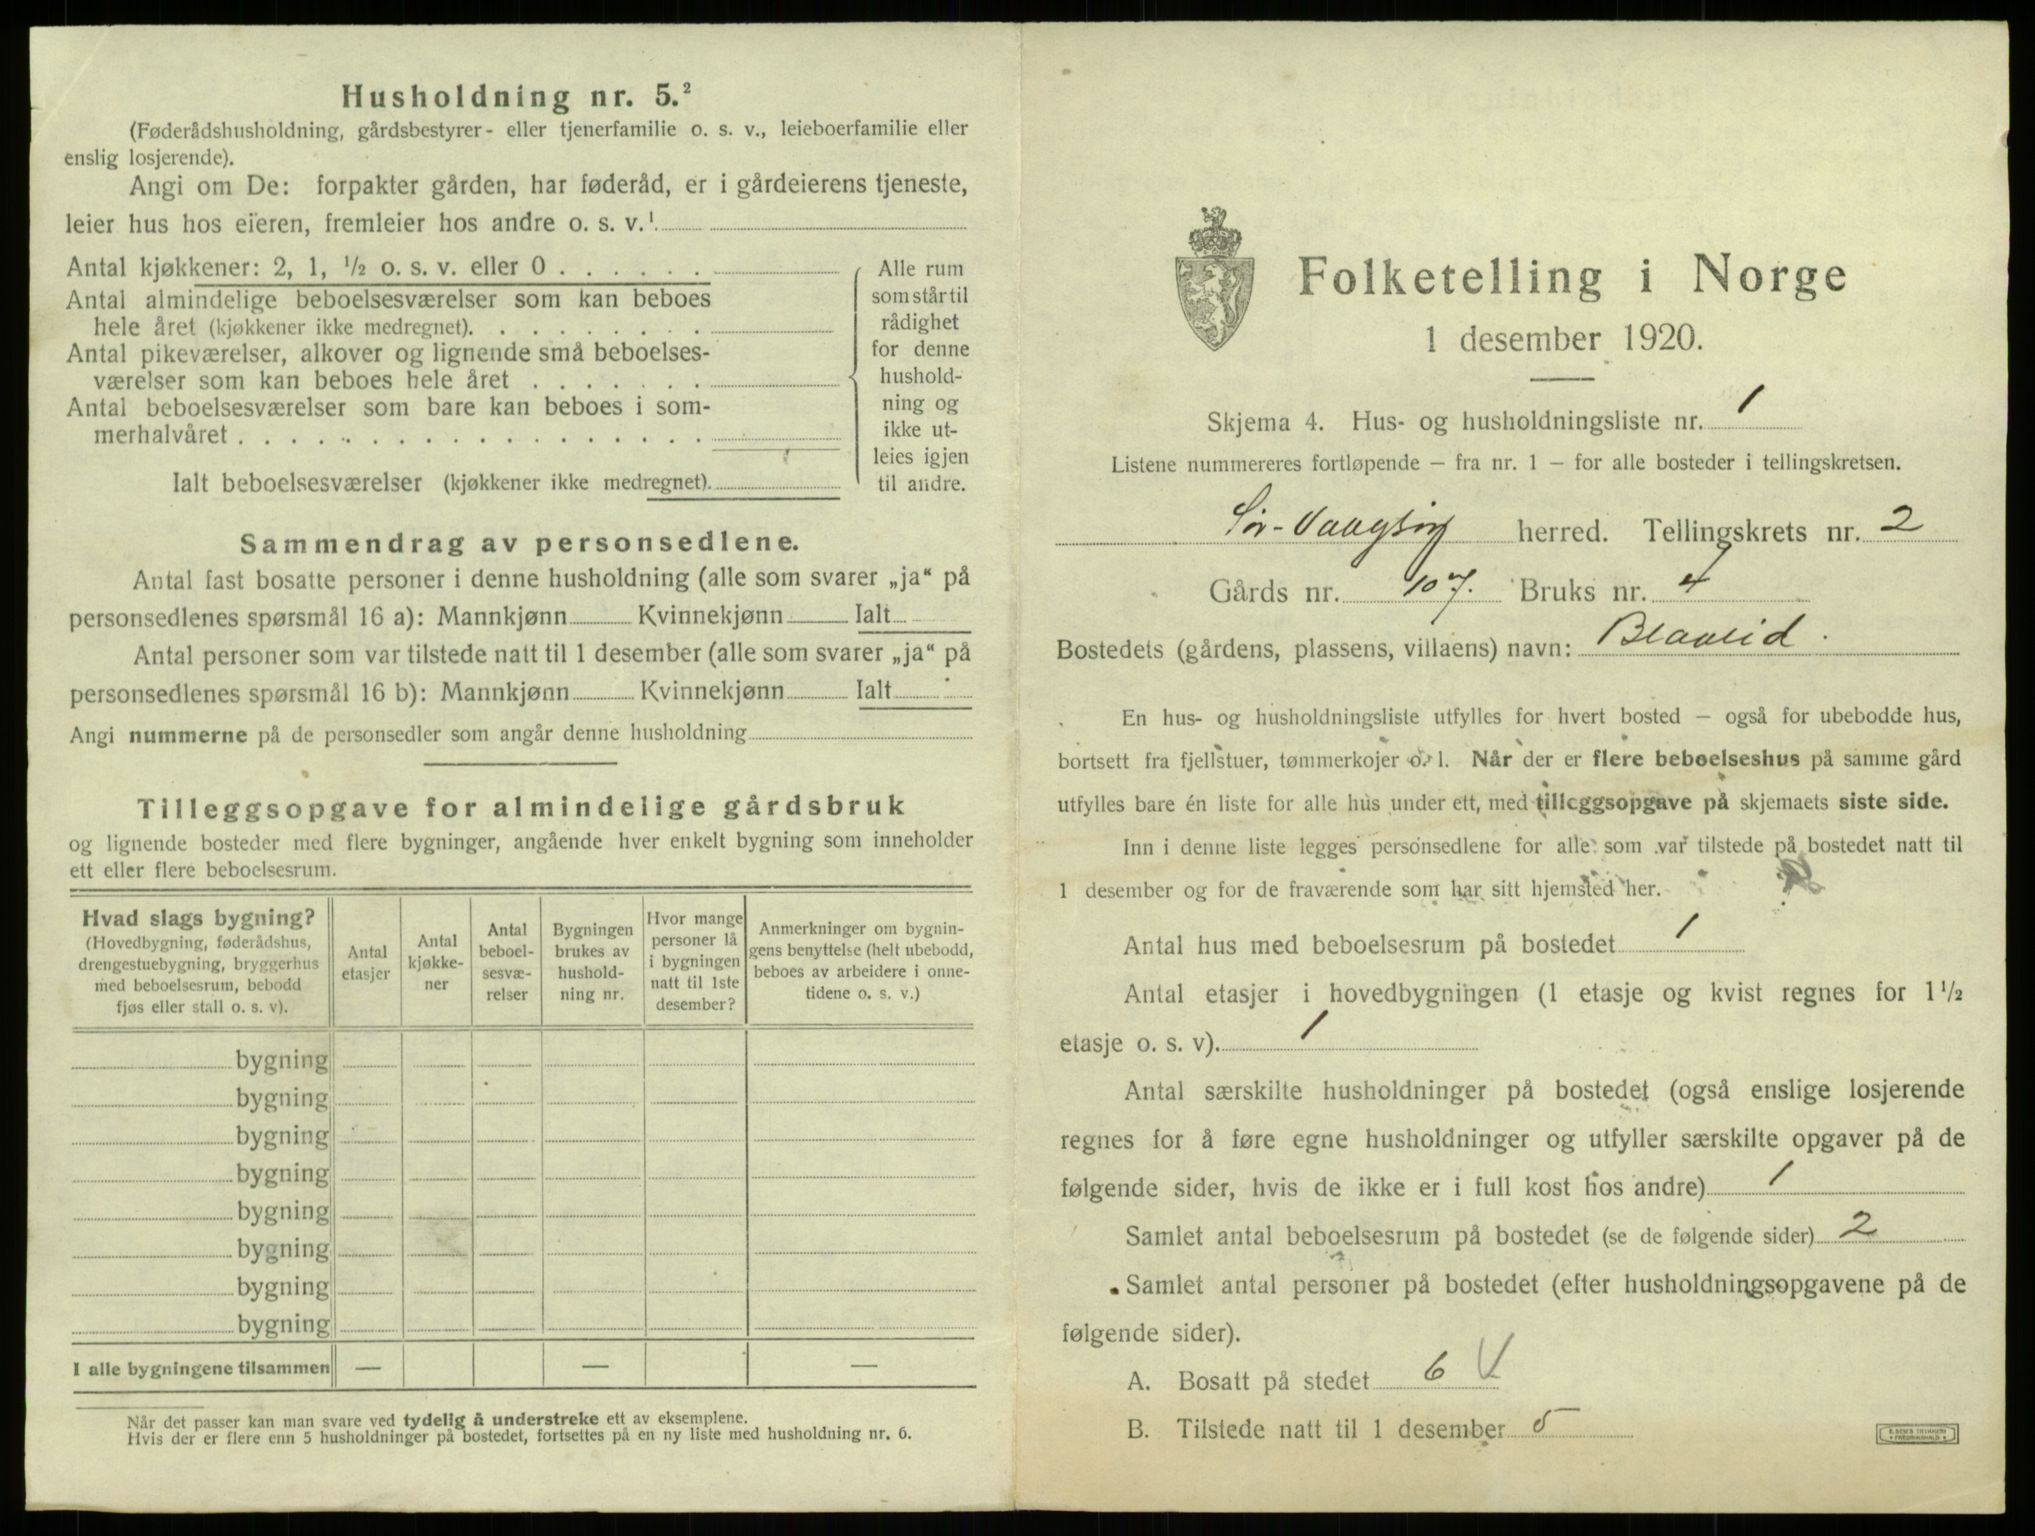 Husholdning nr. 5.²
(Føderådshusholdning, gårdsbestyrer- eller tjenerfamilie o. s. v., leieboerfamilie eller
enslig losjerende).
Angi om De: forpakter gården, har føderåd, er i gårdeierens tjeneste,
leier hus hos eieren, fremleier hos andre o. s. v.¹
Antal kjøkkener: 2, 1, ½ o. s. v. eller 0 . . . . . .
Antal almindelige beboelsesværelser som kan beboes
hele året (kjøkkener ikke medregnet). . . . . . . . . .
Antal pikeværelser, alkover og lignende små beboelses-
værelser som kan beboes hele året . . . . . . .
Antal beboelsesværelser som bare kan beboes i som-
merhalvåret . . . . . . . . . . . . . . . . . .
Ialt beboelsesværelser (kjøkkener ikke medregnet).
Alle rum
som står til
rådighet
for denne
hushold-
ning og
ikke ut-
leies igjen
til andre.
Sammendrag av personsedlene.
Antal fast bosatte personer i denne husholdning (alle som svarer „ja“ på
personsedlenes spørsmål 16 a): Mannkjønn Kvinnekjønn Ialt
Antal personer som var tilstede natt til 1 desember (alle som svarer „ja“ på
personsedlenes spørsmål 16 b): Mannkjønn Kvinnekjønn Ialt
Angi nummerne på de personsedler som angår denne husholdning
Tilleggsopgave for almindelige gårdsbruk
og lignende bosteder med flere bygninger, angående hver enkelt bygning som inneholder
ett eller flere beboelsesrum.
Hvad slags bygning?
(Hovedbygning, føderådshus,
drengestuebygning, bryggerhus
med beboelsesrum, bebodd
fjøs eller stall o. s. v).
Antal
etasjer
Antal
kjøkke-
ner
Antal
beboel-
sesvæ-
relser
Bygningen
brukes av
hushold-
ning nr.
Hvor mange
personer lå
i bygningen
natt til 1ste
desember?
Anmerkninger om bygnin-
gens benyttelse (helt ubebodd,
beboes av arbeidere i onne-
tidene o. s. v.)
bygning
bygning
bygning
bygning
bygning
bygning
bygning
bygning
I alle bygningene tilsammen — — —
Når det passer kan man svare ved tydelig å understreke ett av eksemplene.
Hvis der er flere enn 5 husholdninger på bostedet, fortsettes på en ny liste med husholdning nr. 6.
Folketelling i Norge
1 desember 1920.
Skjema 4. Hus- og husholdningsliste nr. 1
Listene nummereres fortløpende – fra nr. 1 – for alle bosteder i tellingskretsen.
Sør-Vaagsøy herred. Tellingskrets nr. 2
Gårds nr. 107. Bruks nr. 4
Bostedets (gårdens, plassens, villaens) navn: Blaalid.
En hus- og husholdningsliste utfylles for hvert bosted – også for ubebodde hus,
bortsett fra fjellstuer, tømmerkojer o. l. Når der er flere beboelseshus på samme gård
utfylles bare én liste for alle hus under ett, med tilleggsopgave på skjemaets siste side.
Inn i denne liste legges personsedlene for alle som var tilstede på bostedet natt til
1 desember og for de fraværende som har sitt hjemsted her.
Antal hus med beboelsesrum på bostedet 1
Antal etasjer i hovedbygningen (1 etasje og kvist regnes for 1½
etasje o. s. v). 1
Antal særskilte husholdninger på bostedet (også enslige losjerende
regnes for å føre egne husholdninger og utfyller særskilte opgaver på de
følgende sider, hvis de ikke er i full kost hos andre) 1
Samlet antal beboelsesrum på bostedet (se de følgende sider) 2
Samlet antal personer på bostedet (efter husholdningsopgavene på de
følgende sider).
A. Bosatt på stedet 6 V
B. Tilstede natt til 1 desember 5